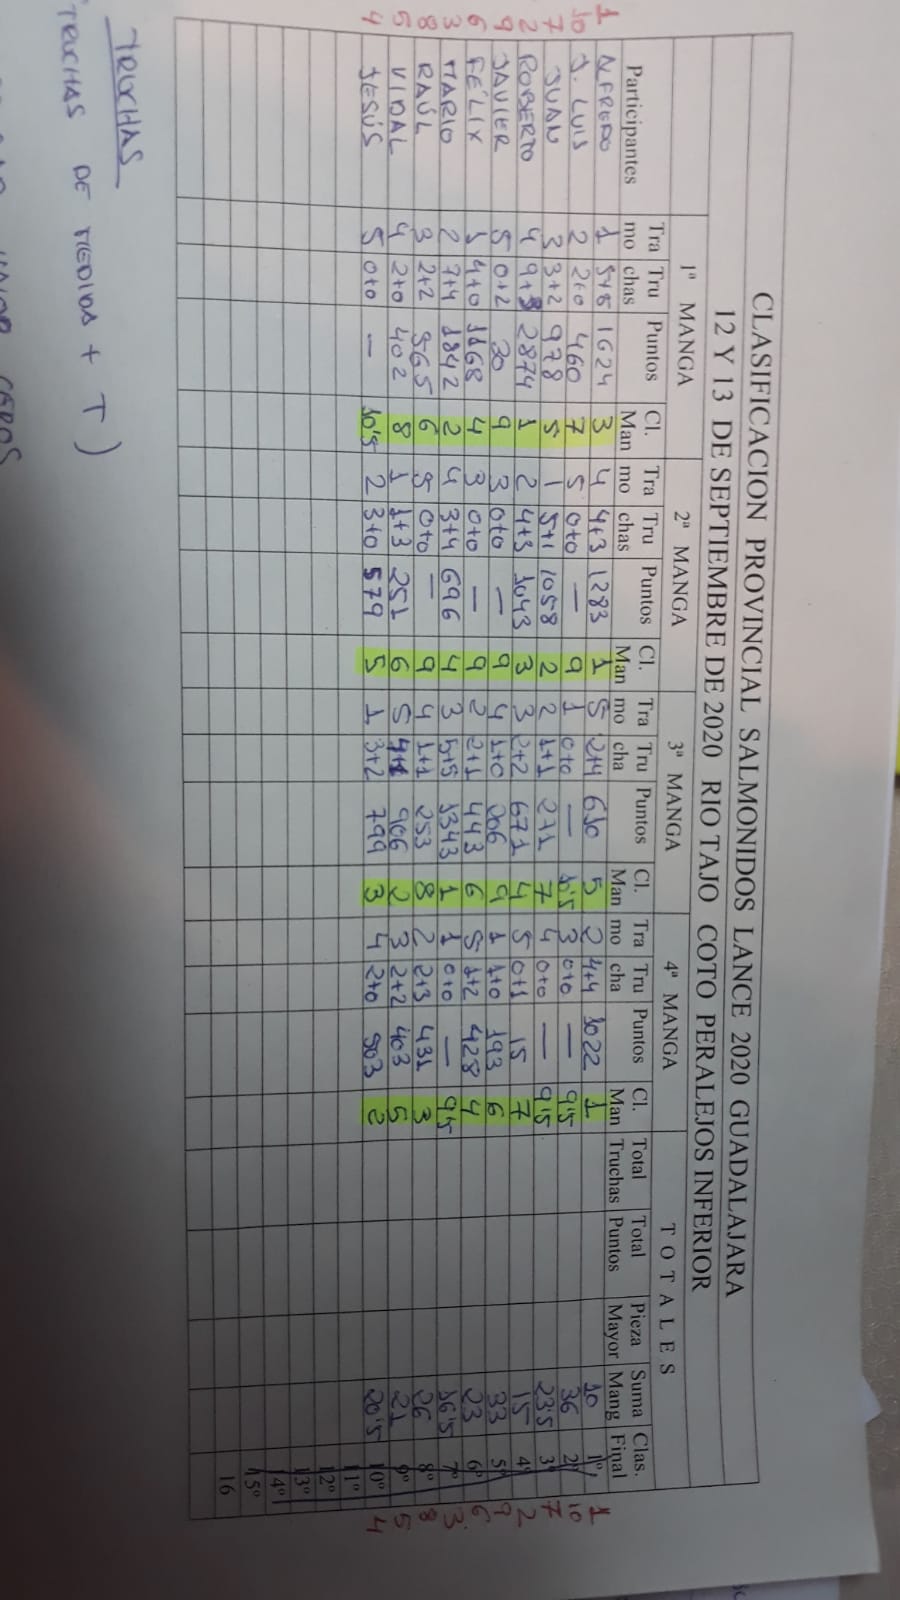 CLASIFICACION PROVINCIAL SALMONIDOS LANCE 2020 GUADALAJARA
12 Y 13 DE SEPTIEMBRE DE 2020 RIO TAJO COTO PERALEJOS INFERIOR
1ª MANGA 2ª MANGA 3ª MANGA 4ª MANGA T O T A L E S
Participantes Tra mo Tru chas Puntos Cl. Man Tra mo Tru chas Puntos Cl. Man Tra mo Tru cha Puntos Cl. Man Tra mo Tru cha Puntos Cl. Man Total Truchas Total Puntos Pieza Mayor Suma Mang Clas. Final
1 ALFREDO 1 5+5 1624 3 4 4+3 1283 1 5 2+4 610 5 2 4+4 1022 1 10 1º 1
10 J. LUIS 2 2+0 460 7 5 0+0 — 9 1 0+0 — 10'5 3 0+0 — 9'5 36 2º 10
7 JUAN 3 3+2 978 5 1 5+1 1058 2 2 1+1 271 7 4 0+0 — 9'5 23'5 3º 7
2 ROBERTO 4 9+3 2874 1 2 4+3 1043 3 3 2+2 671 4 5 0+1 15 7 15 4º 2
9 JAVIER 5 0+2 30 9 3 0+0 — 9 4 1+0 206 9 1 1+0 193 6 33 5º 9
6 FÉLIX 1 4+0 1168 4 3 0+0 — 9 2 2+1 443 6 5 1+2 428 4 23 6º 6
3 MARIO 2 7+4 1842 2 4 3+4 696 4 3 5+5 1343 1 1 0+0 — 9'5 16'5 7º 3
8 RAÚL 3 2+2 565 6 5 0+0 — 9 4 1+1 253 8 2 2+3 431 3 26 8º 8
5 VIDAL 4 2+0 402 8 1 1+3 251 6 5 4+1 906 2 3 2+2 403 5 21 9º 5
4 JESÚS 5 0+0 — 10'5 2 3+0 579 5 1 3+2 799 3 4 2+0 503 2 20'5 10º 4
11º
12º
13º
14º
15º
16
TRUCHAS
TRUCHAS DE MEDIDAS + T)